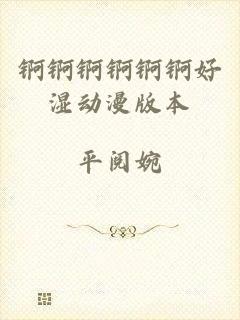 锕锕锕锕锕锕好
湿动漫版本
平阅婉